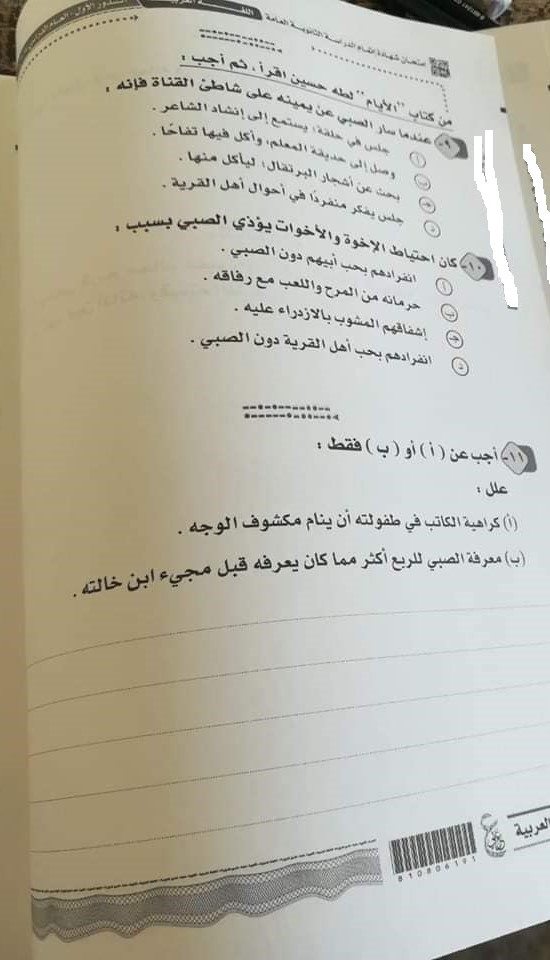 امتحان شهادة إتمام الدراسة الثانوية العامة
من كتاب "الأيام" لطه حسين اقرأ، ثم أجب :
٩- عندما سار الصبي عن يمينه على شاطئ القناة فإنه :
أ جلس في حلقة؛ يستمع إلى إنشاد الشاعر .
ب وصل إلى حديقة المعلم، وأكل فيها تفاحًا .
ج بحث عن أشجار البرتقال؛ ليأكل منها .
د جلس يفكر منفردًا في أحوال أهل القرية .
١٠- كان احتياط الإخوة والأخوات يؤذي الصبي بسبب :
أ انفرادهم بحب أبيهم دون الصبي .
ب حرمانه من المرح واللعب مع رفاقه .
ج إشفاقهم المشوب بالازدراء عليه .
د انفرادهم بحب أهل القرية دون الصبي .
١١- أجب عن ( أ ) أو ( ب ) فقط :
علل :
(أ) كراهية الكاتب في طفولته أن ينام مكشوف الوجه .
(ب) معرفة الصبي للربع أكثر مما كان يعرفه قبل مجيء ابن خالته .
العربية
810806191